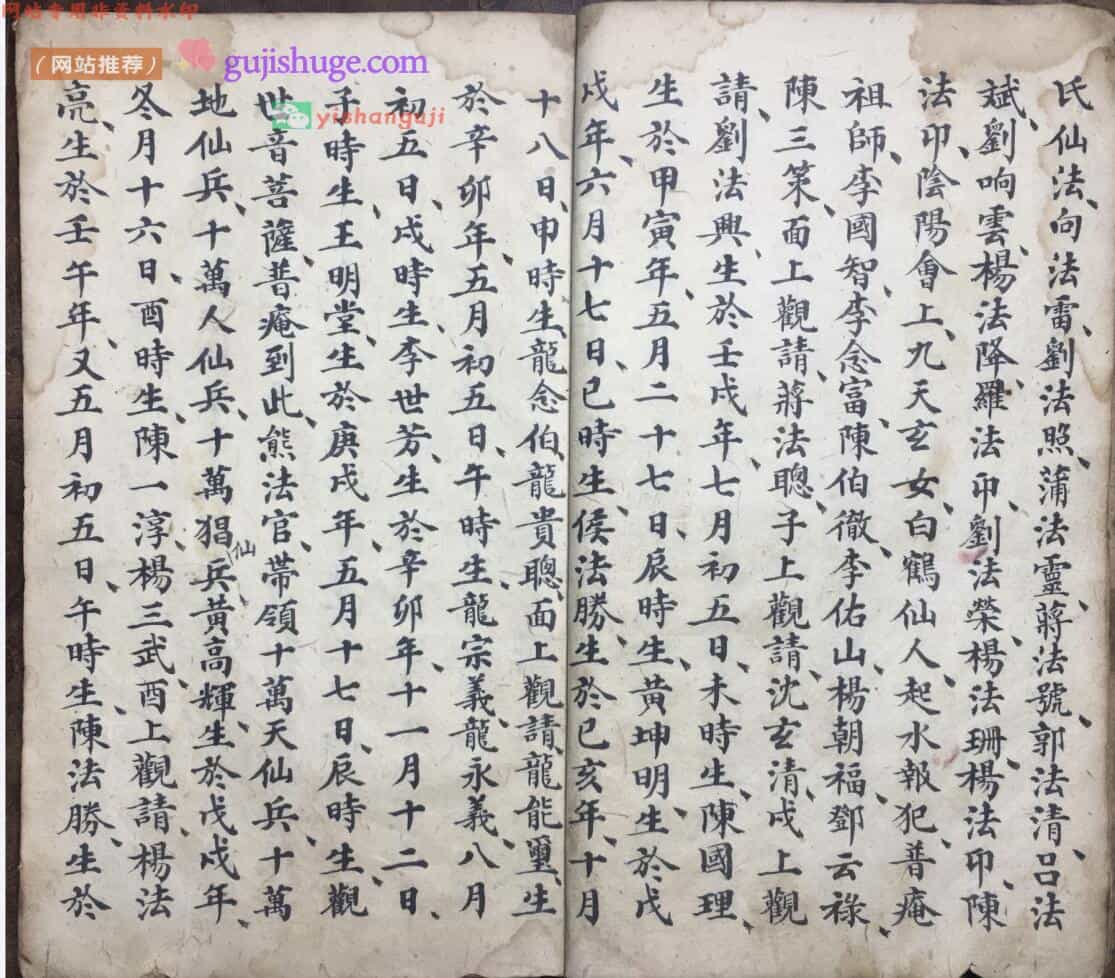 网站专用非资料水印
（网站推荐）
gujishuge.com
yishanguji
氏仙法、向法雷、劉法照、蒲法靈、蔣法號、郭法清、呂法
斌、劉响雲、楊法降、羅法印、劉法榮、楊法珊、楊法印、陳
法印、陰陽會上、九天玄女、白鶴仙人、起水報犯、普庵
祖師、李國智、李念富、陳伯徹、李佑山、楊朝福、鄧云祿、
陳三策、面上觀請、蔣法聰、子上觀請、沈玄清、戌上觀
請、劉法興、生於壬戌年、七月初五日、未時生、陳國理、
生於甲寅年、五月二十七日、辰時生、黃坤明、生於戊
戌年、六月十七日、巳時生、侯法勝、生於己亥年、十月
十八日、申時生、龍念伯、龍貴聰、面上觀請、龍能璽、生
於辛卯年、五月初五日、午時生、龍宗義、龍永義、八月
初五日、戌時生、李世芳、生於辛卯年、十一月十二日、
子時生、王明堂、生於庚戌年、五月十七日、辰時生、觀
世音菩薩、普庵到此、熊法官、帶領十萬天仙兵、十萬
地仙兵、十萬人仙兵、十萬猖仙兵、黃高輝、生於戊戌年、
冬月十六日、酉時生、陳一淳、楊三武、酉上觀請、楊法
亮、生於壬午年、又五月初五日、午時生、陳法勝、生於